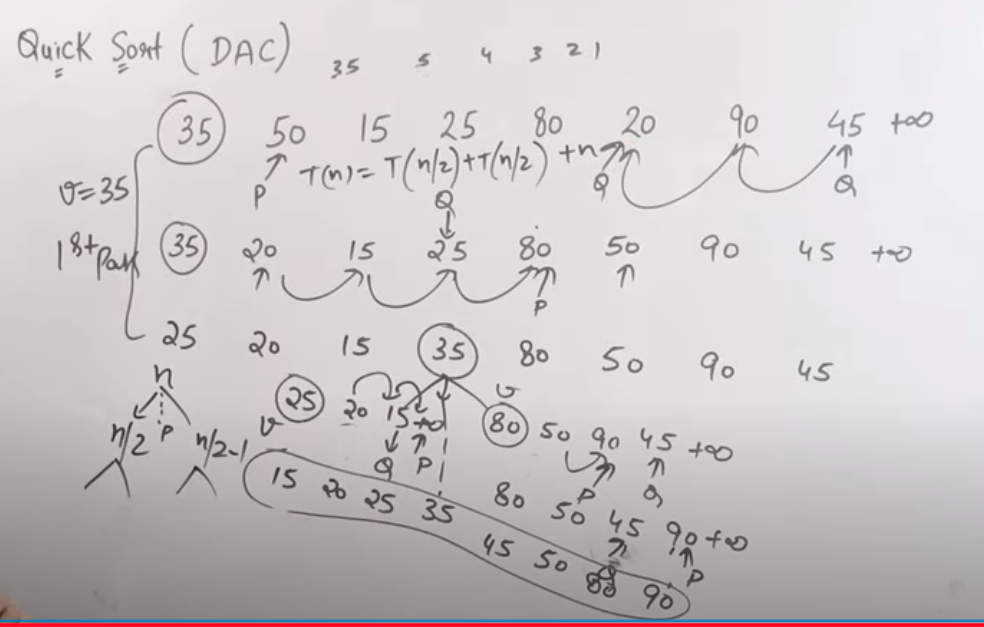 Quick Sort (DAC)
35 5 4 3 2 1
35 50 15 25 80 20 90 45 +∞
P T(n) = T(n/2) + T(n/2) + n Q Q
v=35
Q
1st Pass 35 20 15 25 80 50 90 45 +∞
P
25 20 15 35 80 50 90 45
n
v 25 20 15 +∞ v 80 50 90 45 +∞
n/2 P n/2-1
Q P P Q
15 20 25 35 80 50 45 90 +∞
Q P
45 50 80 90